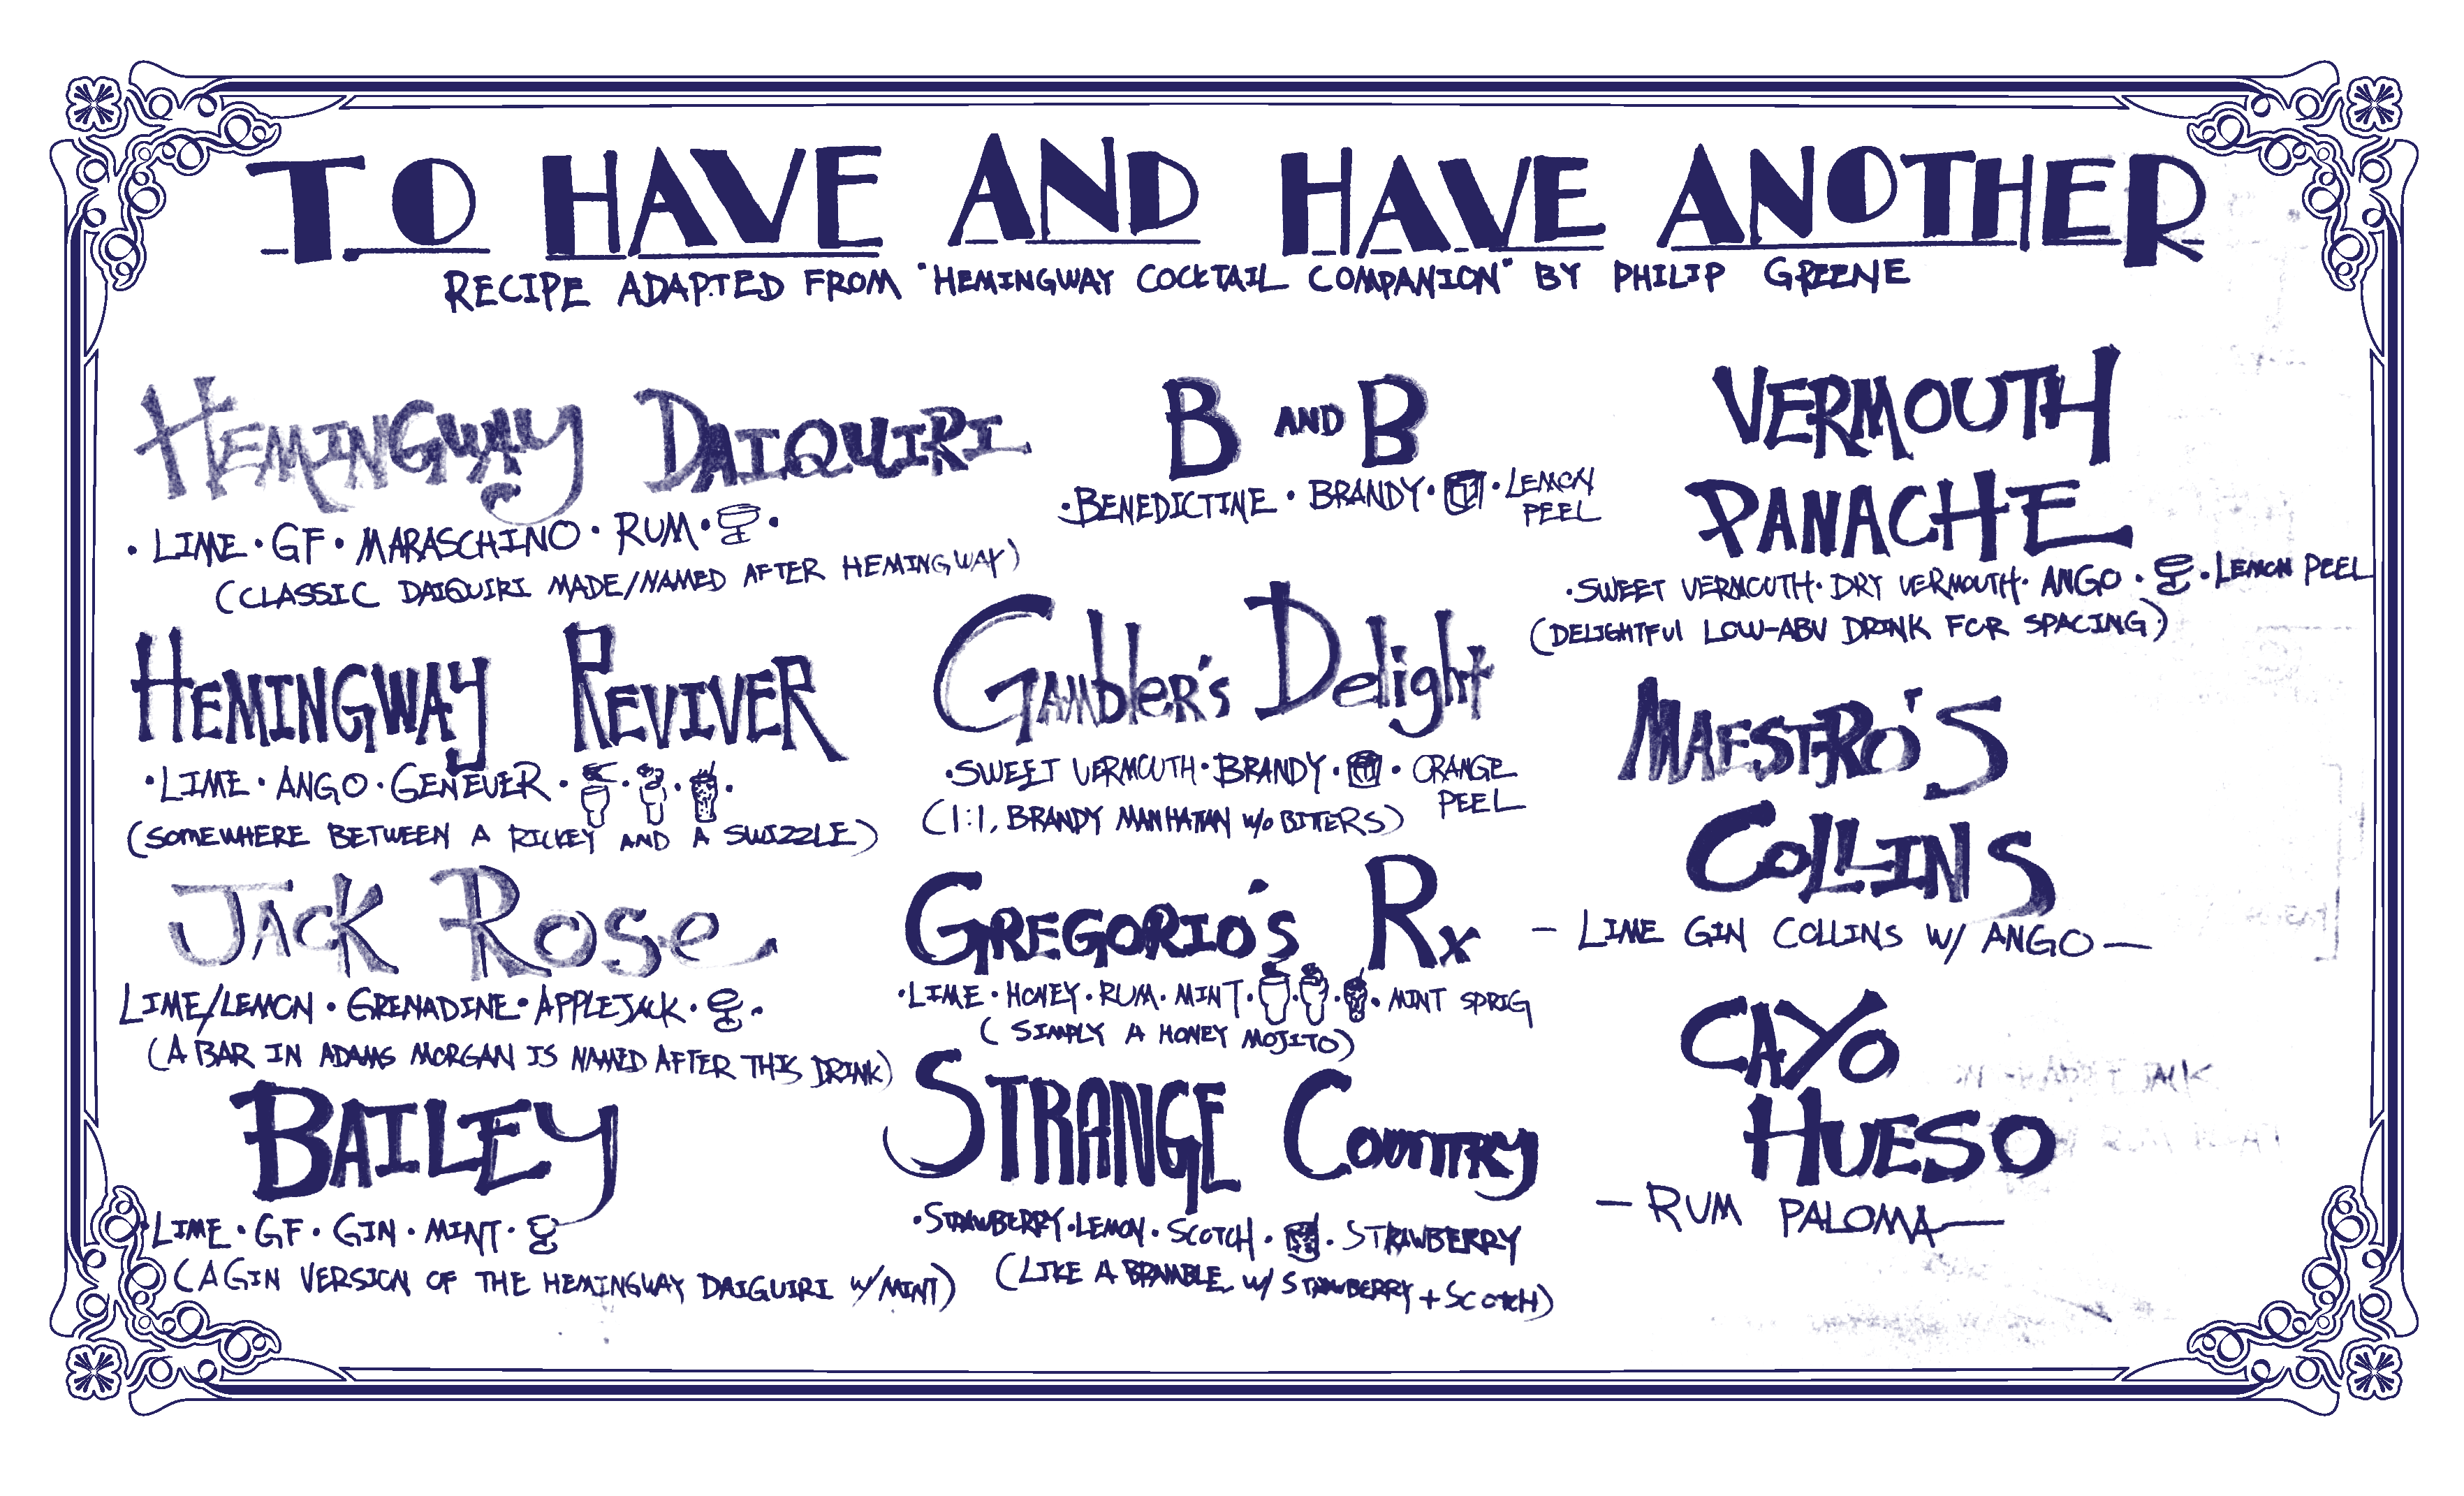 TO HAVE AND HAVE ANOTHER
RECIPE ADAPTED FROM "HEMINGWAY COCKTAIL COMPANION" BY PHILIP GREENE
HEMINGWAY DAIQUIRI
· LIME · GF · MARASCHINO · RUM · ·
(CLASSIC DAIQUIRI MADE/NAMED AFTER HEMINGWAY)
HEMINGWAY REVIVER
· LIME · ANGO · GENEVER · · · ·
(SOMEWHERE BETWEEN A RICKEY AND A SWIZZLE)
JACK ROSE
LIME/LEMON · GRENADINE · APPLEJACK · ·
(A BAR IN ADAMS MORGAN IS NAMED AFTER THIS DRINK)
BAILEY
· LIME · GF · GIN · MINT ·
(A GIN VERSION OF THE HEMINGWAY DAIGUIRI W/MINT)
B AND B
· BENEDICTINE · BRANDY · · LEMON
PEEL
GAMBLER'S DELIGHT
· SWEET VERMOUTH · BRANDY · · ORANGE
PEEL
(1:1, BRANDY MANHATTAN W/O BITTERS)
GREGORIO'S RX
· LIME · HONEY · RUM · MINT · · · · MINT SPRIG
( SIMPLY A HONEY MOJITO)
STRANGE COUNTRY
· STRAWBERRY · LEMON · SCOTCH · · STRAWBERRY
(LIKE A BRAMBLE W/ STRAWBERRY + SCOTCH)
VERMOUTH
PANACHE
· SWEET VERMOUTH · DRY VERMOUTH · ANGO · · LEMON PEEL
(DELIGHTFUL LOW-ABV DRINK FOR SPACING)
MAESTRO'S
COLLINS
– LIME GIN COLLINS W/ ANGO –
CAYO
HUESO
– RUM PALOMA –